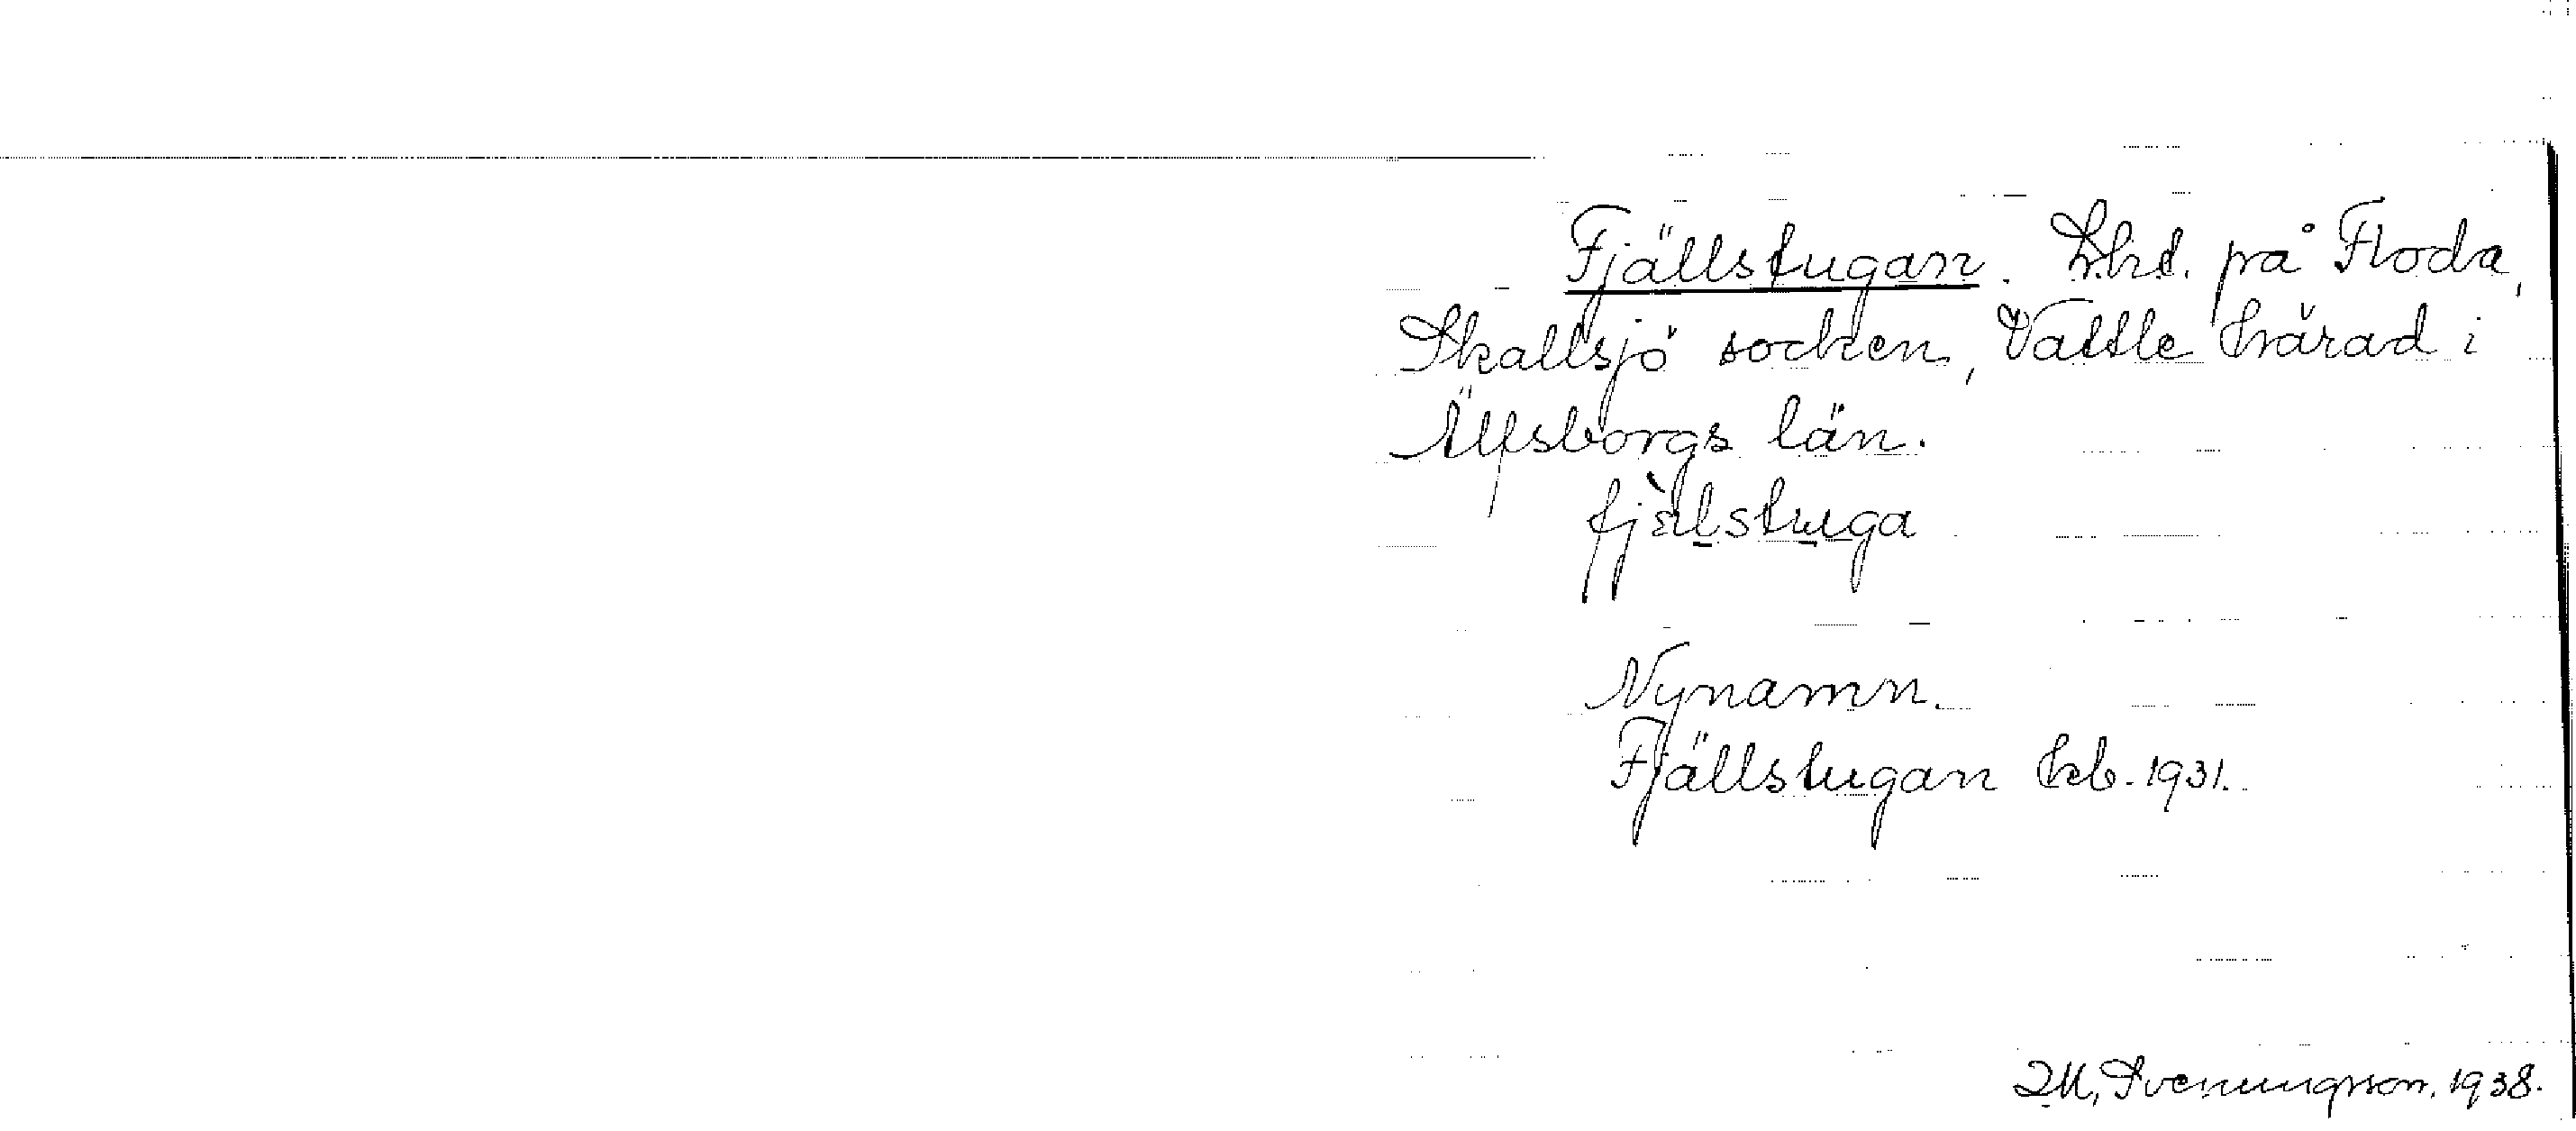 Fjällstugan. Lht. på Floda,
Skallsjö socken, Vättle härad i
Älfsborgs län.
fjὲlstuga
Nynamn.
Fjällstugan hb. 1931.
M. Svenungsson. 1938.